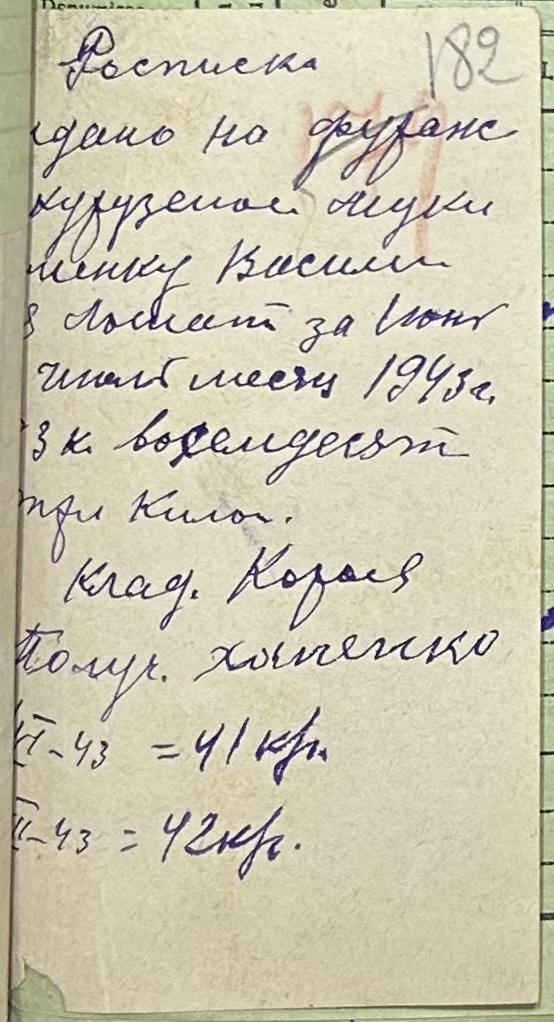 182
Росписка
дано на фураж
курузеной муки
менку Васили
Лошат за Июнь
Июль месяц 1943г.
3 к. восемдесят
три Килог.
Клад. Короля
Получ. Хоменко
VI-43 = 41 кгр.
II-43 = 42 кгр.